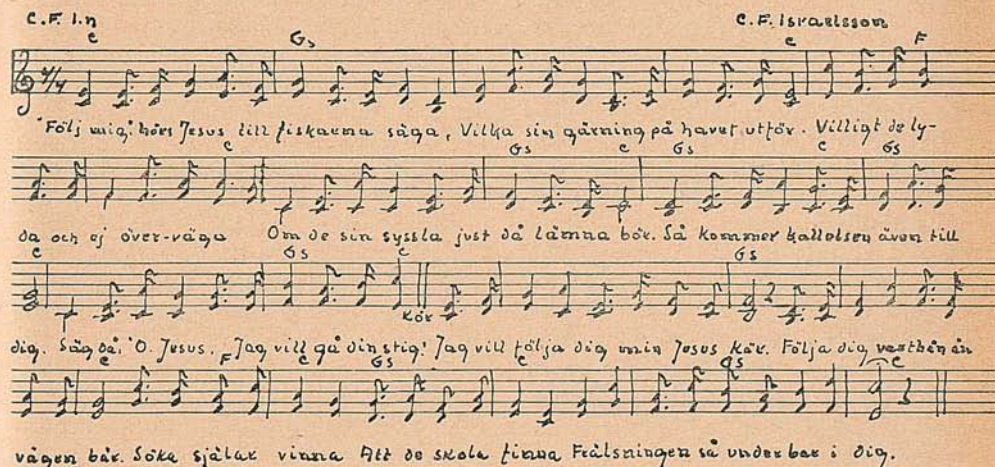 C.F. I.n C.F. Israelsson
C Gs C F
4/4
"Följ mig" hörs Jesus till fiskarna säga, Vilka sin gärning på havet utför. Villigt de ly-
C Gs C Gs C Gs
da och ej över-väga Om de sin syssla just då lämna bör. Så kommer kallelsen även till
C Gs C Gs
Kör
dig. Säg då, "O. Jesus, Jag vill gå din stig! Jag vill följa dig min Jesus kär. Följa dig varthän än
C F C Gs C Gs C
vägen bär. Söka själar vinna Att de skola finna Frälsningen så underbar i dig.